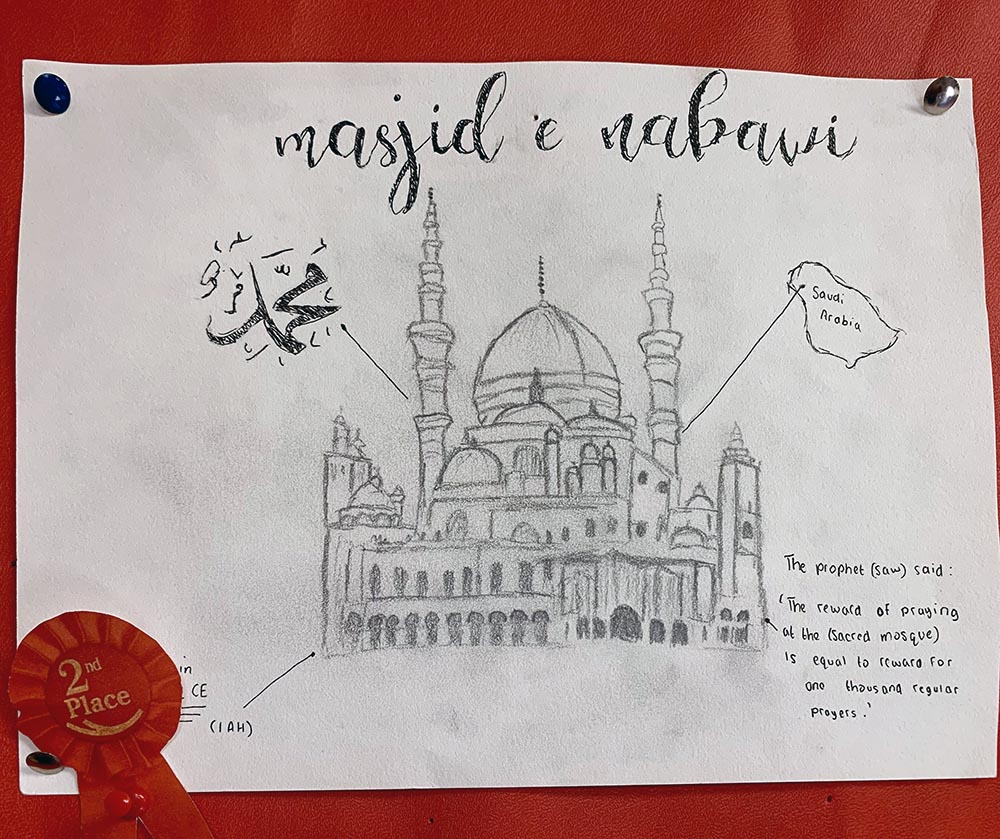 masjid e nabawi
محمد
Saudi
Arabia
The prophet (saw) said :
'The reward of praying
at the (Sacred mosque)
is equal to reward for
one thousand regular
prayers.'
in
CE
(1 AH)
2nd
Place